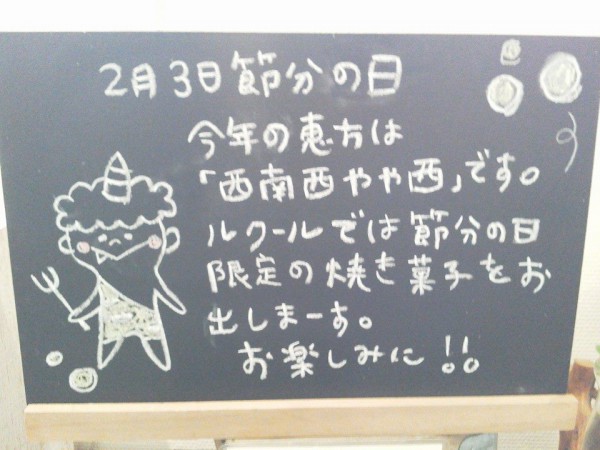 2月3日節分の日
今年の恵方は
「西南西やや西」です。
ルクールでは節分の日
限定の焼き菓子をお
出しまーす。
お楽しみに!!